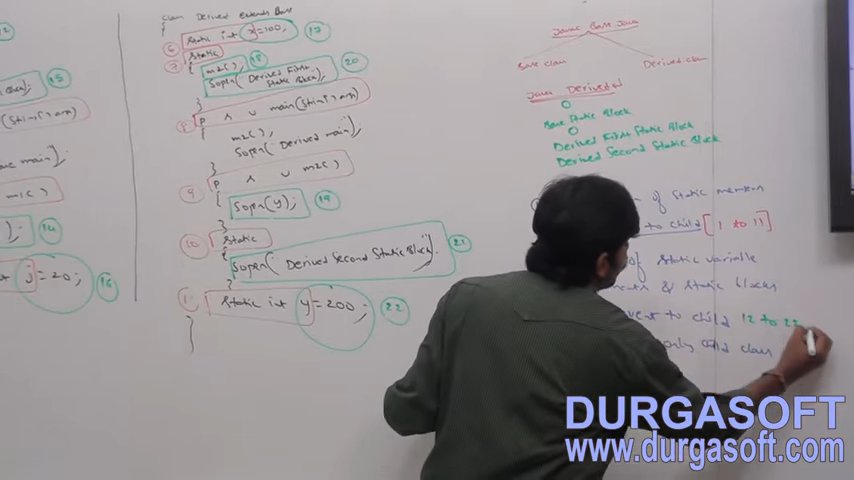 12
15
main
m1()
14
j=20; 16
class Derived extends Base
{
6 static int x=100; 17
7 static
{ m2(); 18
Sopln("Derived First Static Block"); 20
}
8 p s v main(String[] args)
{
m2();
Sopln("Derived main");
}
9 p s v m2()
{
Sopln(y); 19
}
10 static
{
Sopln("Derived Second Static Block"); 21
}
11 static int y=200; 22
}
Javac Base.Java
Base.class Derived.class
Java Derived
0
Base Static Block
0
Derived First Static Block
Derived Second Static Block
of static members
to child [1 to 11]
of static variable
& static blocks
to child 12 to 22
only child class
DURGASOFT
www.durgasoft.com